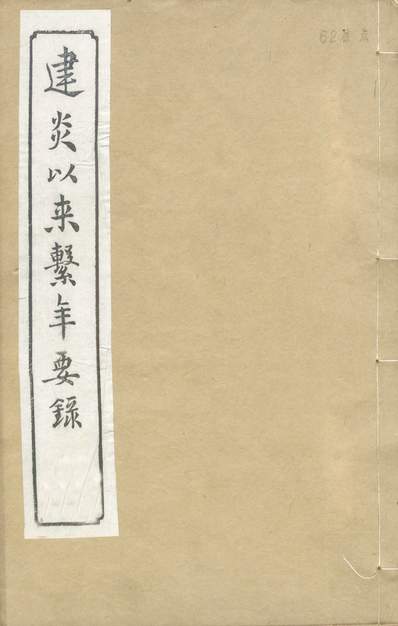 建炎以来繫年要錄